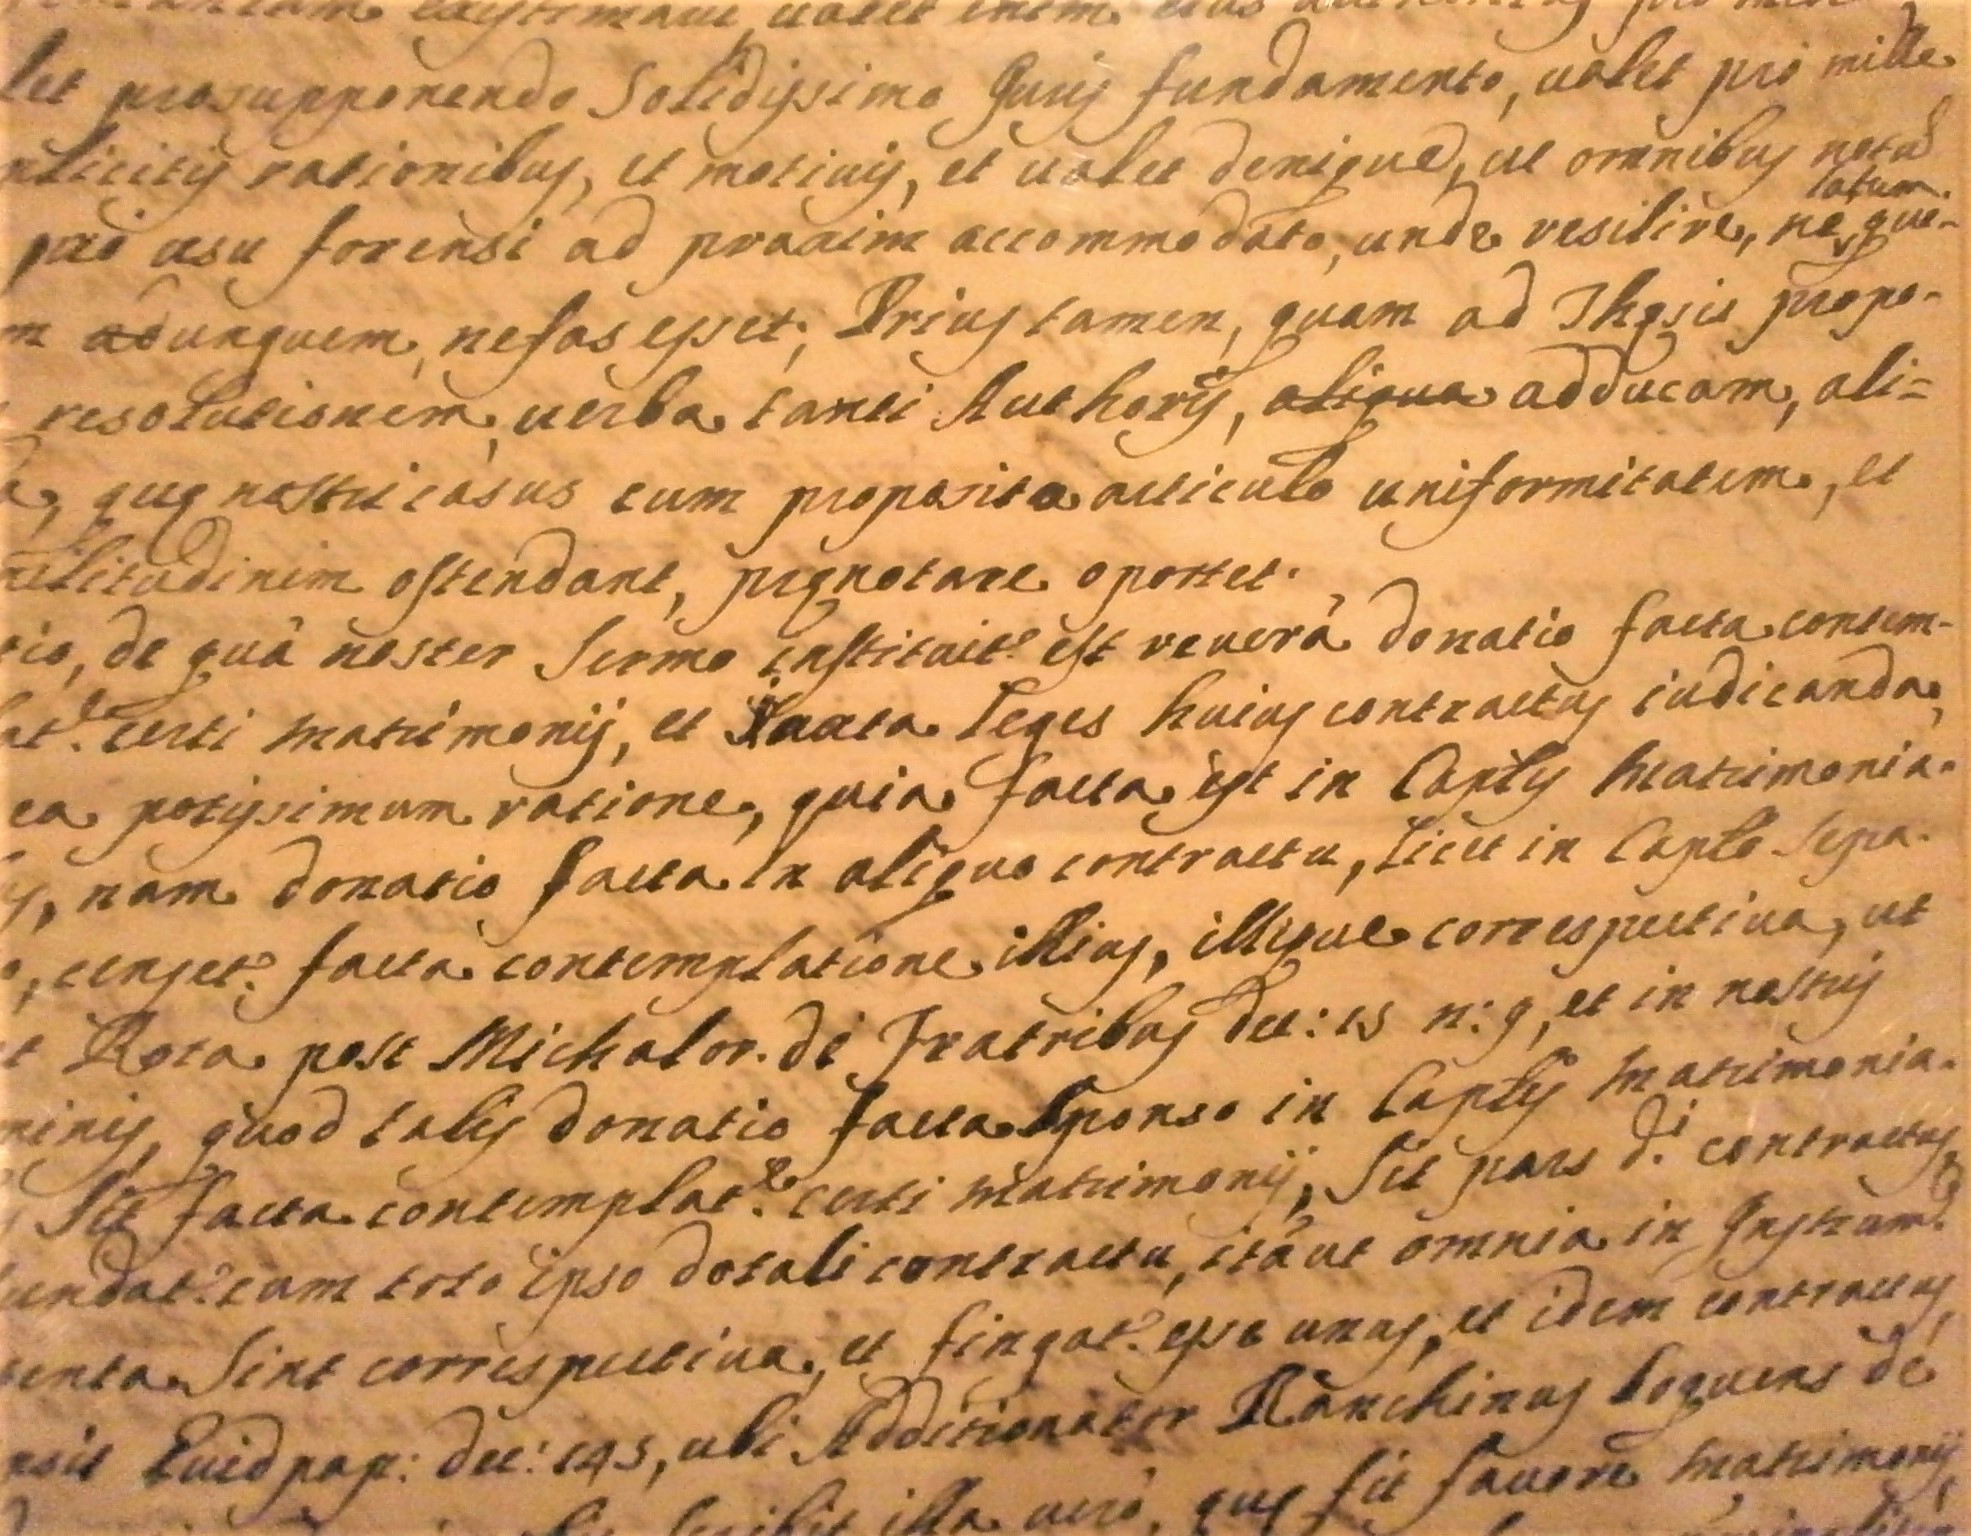 existimaui, ualet enim eius
let prosupponendo Solidissimo Juris fundamento, ualet pro mille
plicitis rationibus, et motiuis, et ualet denique, ut omnibus notu
latum
pro usu forensi ad praxim accommodato, unde resilire, ne que-
m ad unguem, nefas esset; Prius tamen, quam ad Thesis propo-
resolutionem, uerba tanti Authoris, aliqua adducam, ali=
a, quę nostri casus cum proposito articulo uniformitatem, et
militudinem ostendant, prenotare oportet.
tio, de quâ noster Sermo instituit.r est reuerà donatio facta contem-
lat.e certi matrimonij, et Iuxta leges huius contractus iudicanda,
ea potissimum ratione, quia facta est in Caplis Matrimonia-
s, nam donatio facta in aliquo contractu, licet in Caplo Sepa-
o, censet.r facta contemplatione illius, illique correspectiua, ut
t Rota post Michalor. de Fratribus dec: 15 n: 9, et in nostris
minis, quod talis donatio facta Sponso in Caplis Matrimonia-
Sit facta contemplat.e certi Matrimonij, Sit pars d.i contractus,
undat.r cum toto ipso dotali contractu, ità ut omnia in Instrum.o
tenta Sint correspectiua, et fingat.r esse unus, et idem contractus
nsit Guid pap: dec: 145, ubi Additionator Ranchinus loquens de
illa uerò, quę fit fauore Matrimonij